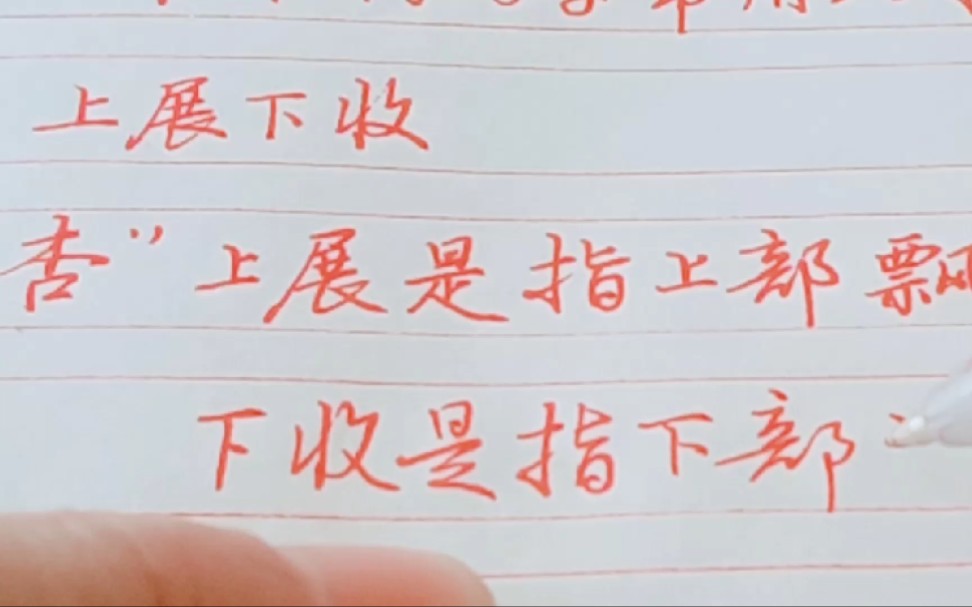 上展下收
杏”上展是指上部飘
下收是指下部